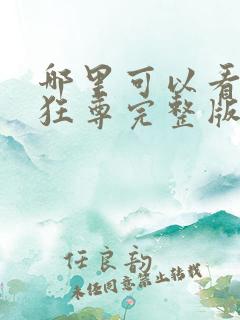 哪里可以看
狂尊完整版
任良韵
未经同意禁止转载